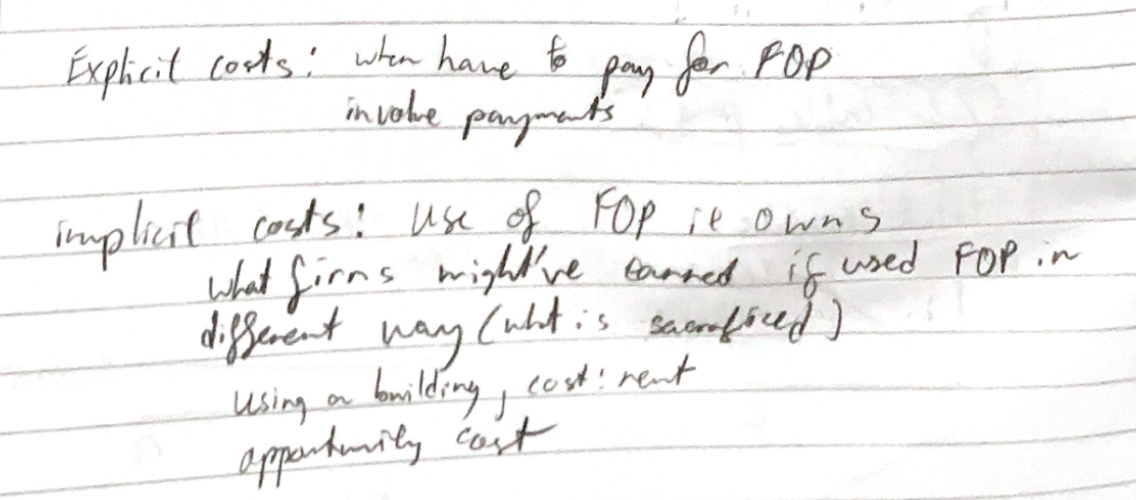 Explicit costs: when have to pay for FOP
involve payments
implicit costs: Use of FOP it owns
what firms might've earned if used FOP in
different way (what is sacrificed)
Using a building, cost: rent
opportunity cost